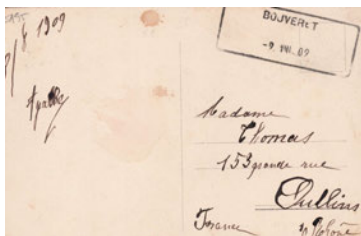 8 1909
BOUVERET
-9. VIII. 09
Madame
Thomas
153 grande rue
Oullins
France
Rhône